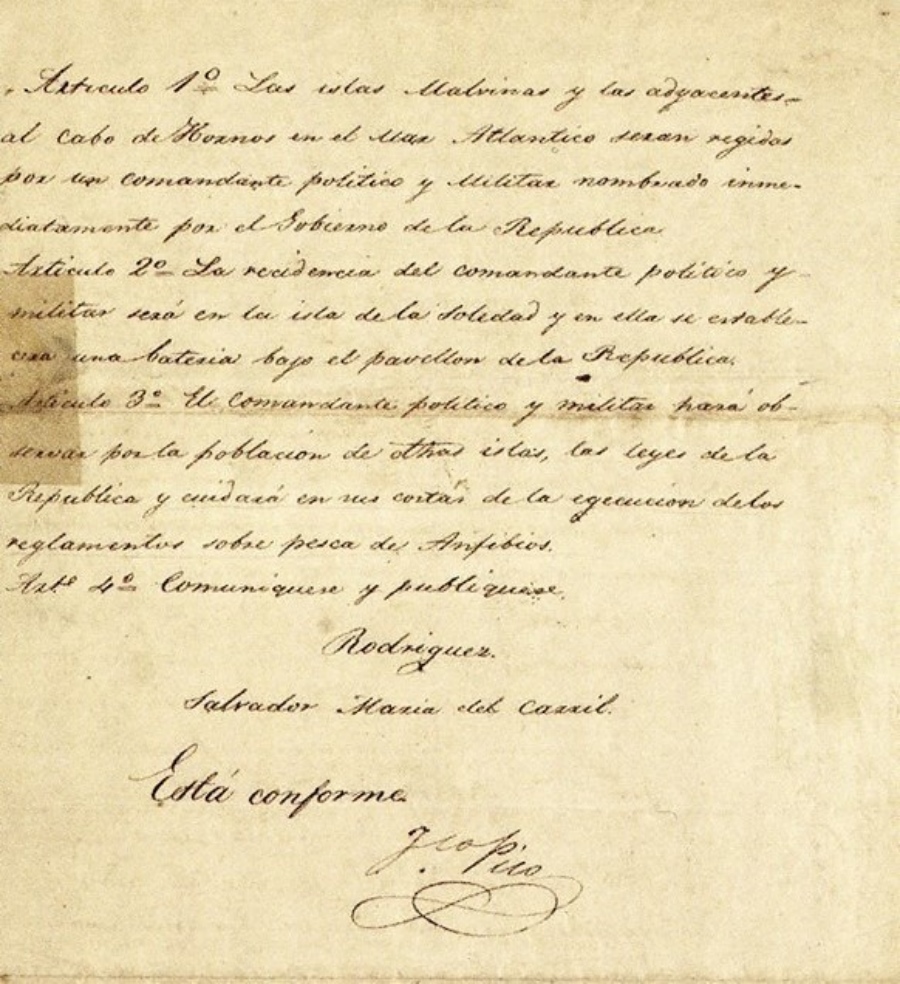 Articulo 1º Las islas Malvinas y las adyacentes
al Cabo de Hornos en el Mar Atlantico seran regidas
por un comandante politico y Militar nombrado inme-
diatamente por el Gobierno de la Republica
Articulo 2º La recidencia del comandante politico y
militar será en la isla de la Soledad y en ella se estable-
cera una bateria bajo el pavellon de la Republica.
Articulo 3º El Comandante politico y militar hará ob-
servar por la poblacion de dhas islas, las leyes de la
Republica y cuidará en sus costas de la egecucion delos
reglamentos sobre pesca de Anfibios.
Artº 4º Comuniquese y publiquese.
Rodriguez.
Salvador Maria del Carril.
Está conforme
Pico